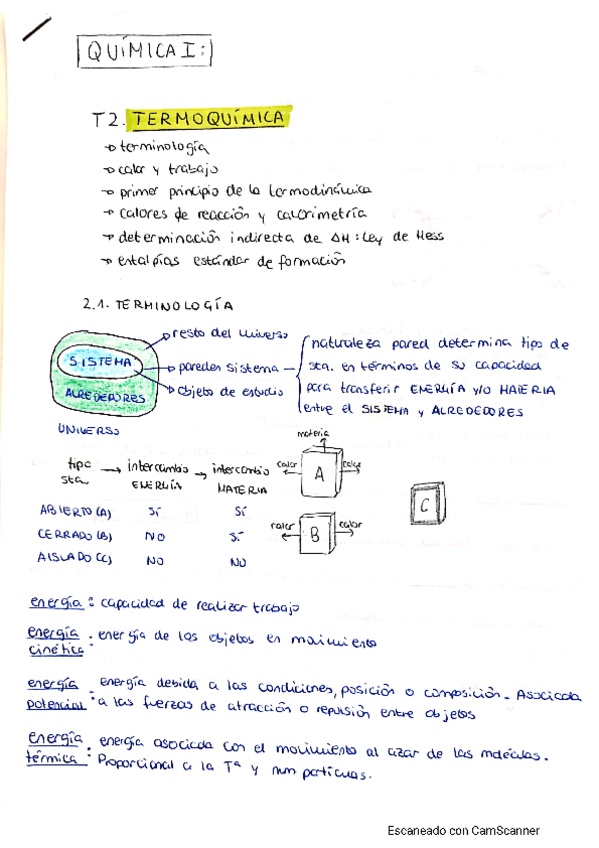 QUÍMICA I:
T2. TERMOQUÍMICA
→ terminología
→ calor y trabajo
→ primer principio de la termodinámica
→ calores de reacción y calorimetría
→ determinación indirecta de ΔH: Ley de Hess
→ entalpías estándar de formación
2.1. TERMINOLOGÍA
SISTEMA
ALREDEDORES
UNIVERSO
resto del universo
paredes sistema
objeto de estudio
naturaleza pared determina tipo de
sta. en términos de su capacidad
para transferir ENERGÍA y/o MATERIA
entre el SISTEMA y ALREDEDORES
tipo sta. → intercambio ENERGÍA → intercambio MATERIA
ABIERTO (A) SÍ SÍ
CERRADO (B) NO SÍ
AISLADO (C) NO NO
materia
calor A calor
calor B calor
C
energía: capacidad de realizar trabajo
energía cinética: energía de los objetos en movimiento
energía potencial: energía debida a las condiciones, posición o composición. Asociada
a las fuerzas de atracción o repulsión entre objetos
energía térmica: energía asociada con el movimiento al azar de las moléculas.
Proporcional a la Tª y num partículas.
Escaneado con CamScanner